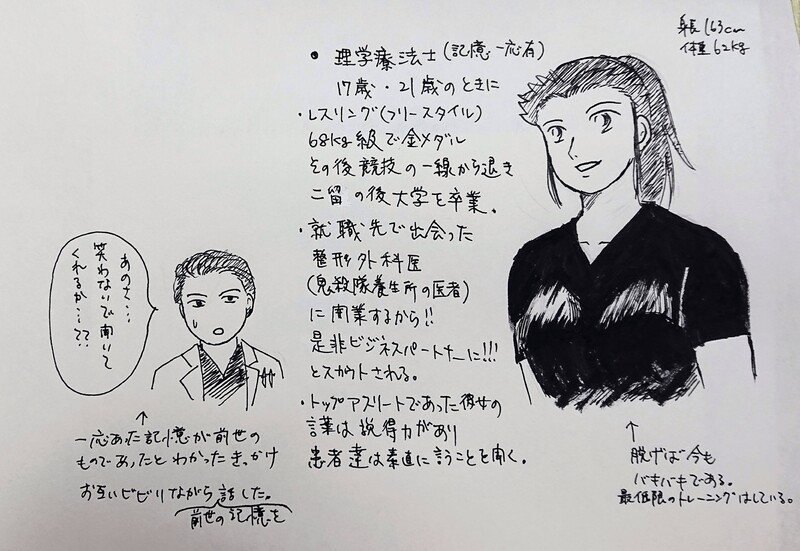 身長163cm
体重62kg
・理学療法士(記憶一応有)
17歳・21歳のときに
・レスリング(フリースタイル)
68kg級で金メダル
その後競技の一線から退き
二留の後大学を卒業。
・就職先で出会った
整形外科医
(鬼殺隊養生所の医者)
に開業するから!!
是非ビジネスパートナーに!!!
とスカウトされる。
・トップアスリートであった彼女の
言葉は説得力があり
患者達は素直に言うことを聞く。
あのさ…
笑わないで聞いて
くれるか…??
↑
一応あった記憶が前世の
ものであったとわかったきっかけ
お互いビビりながら話した。
前世の記憶を
↑
脱げば今も
バキバキである。
最低限のトレーニングはしている。